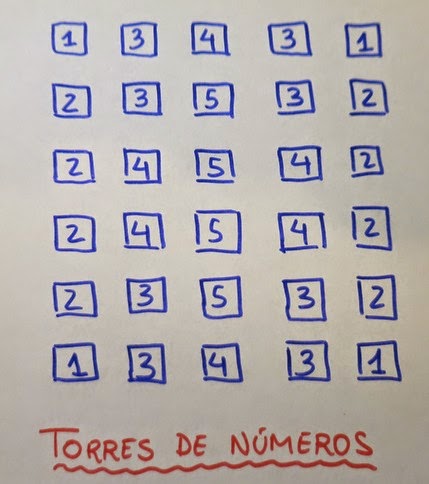 1 3 4 3 1
2 3 5 3 2
2 4 5 4 2
2 4 5 4 2
2 3 5 3 2
1 3 4 3 1
TORRES DE NÚMEROS